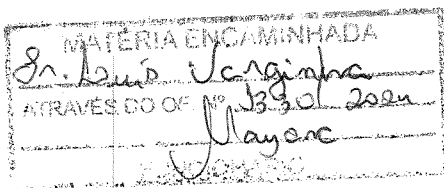 MATÉRIA ENCAMINHADA
Sr. Luís Varginha
ATRAVÉS DO OF. Nº 1330/2024
Mayara